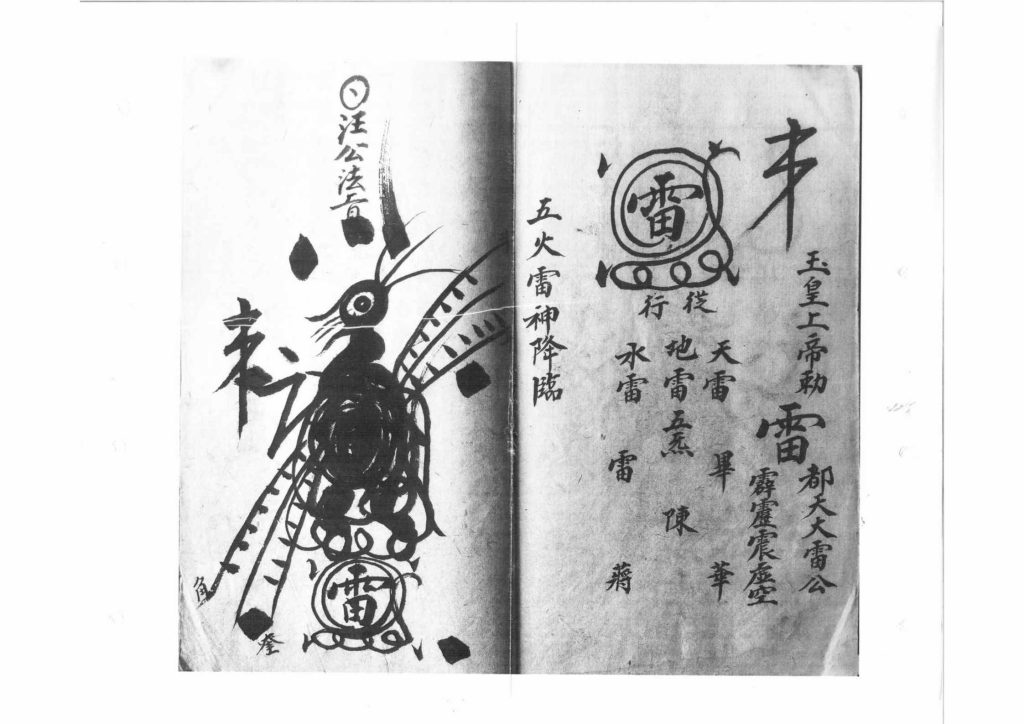 玉皇上帝勅
雷
都天大雷公
霹靂震虛空
雷
從行
天雷 畢 華
地雷五炁 陳
水雷 雷 蔣
五火雷神降臨
汪公法旨
雷
角